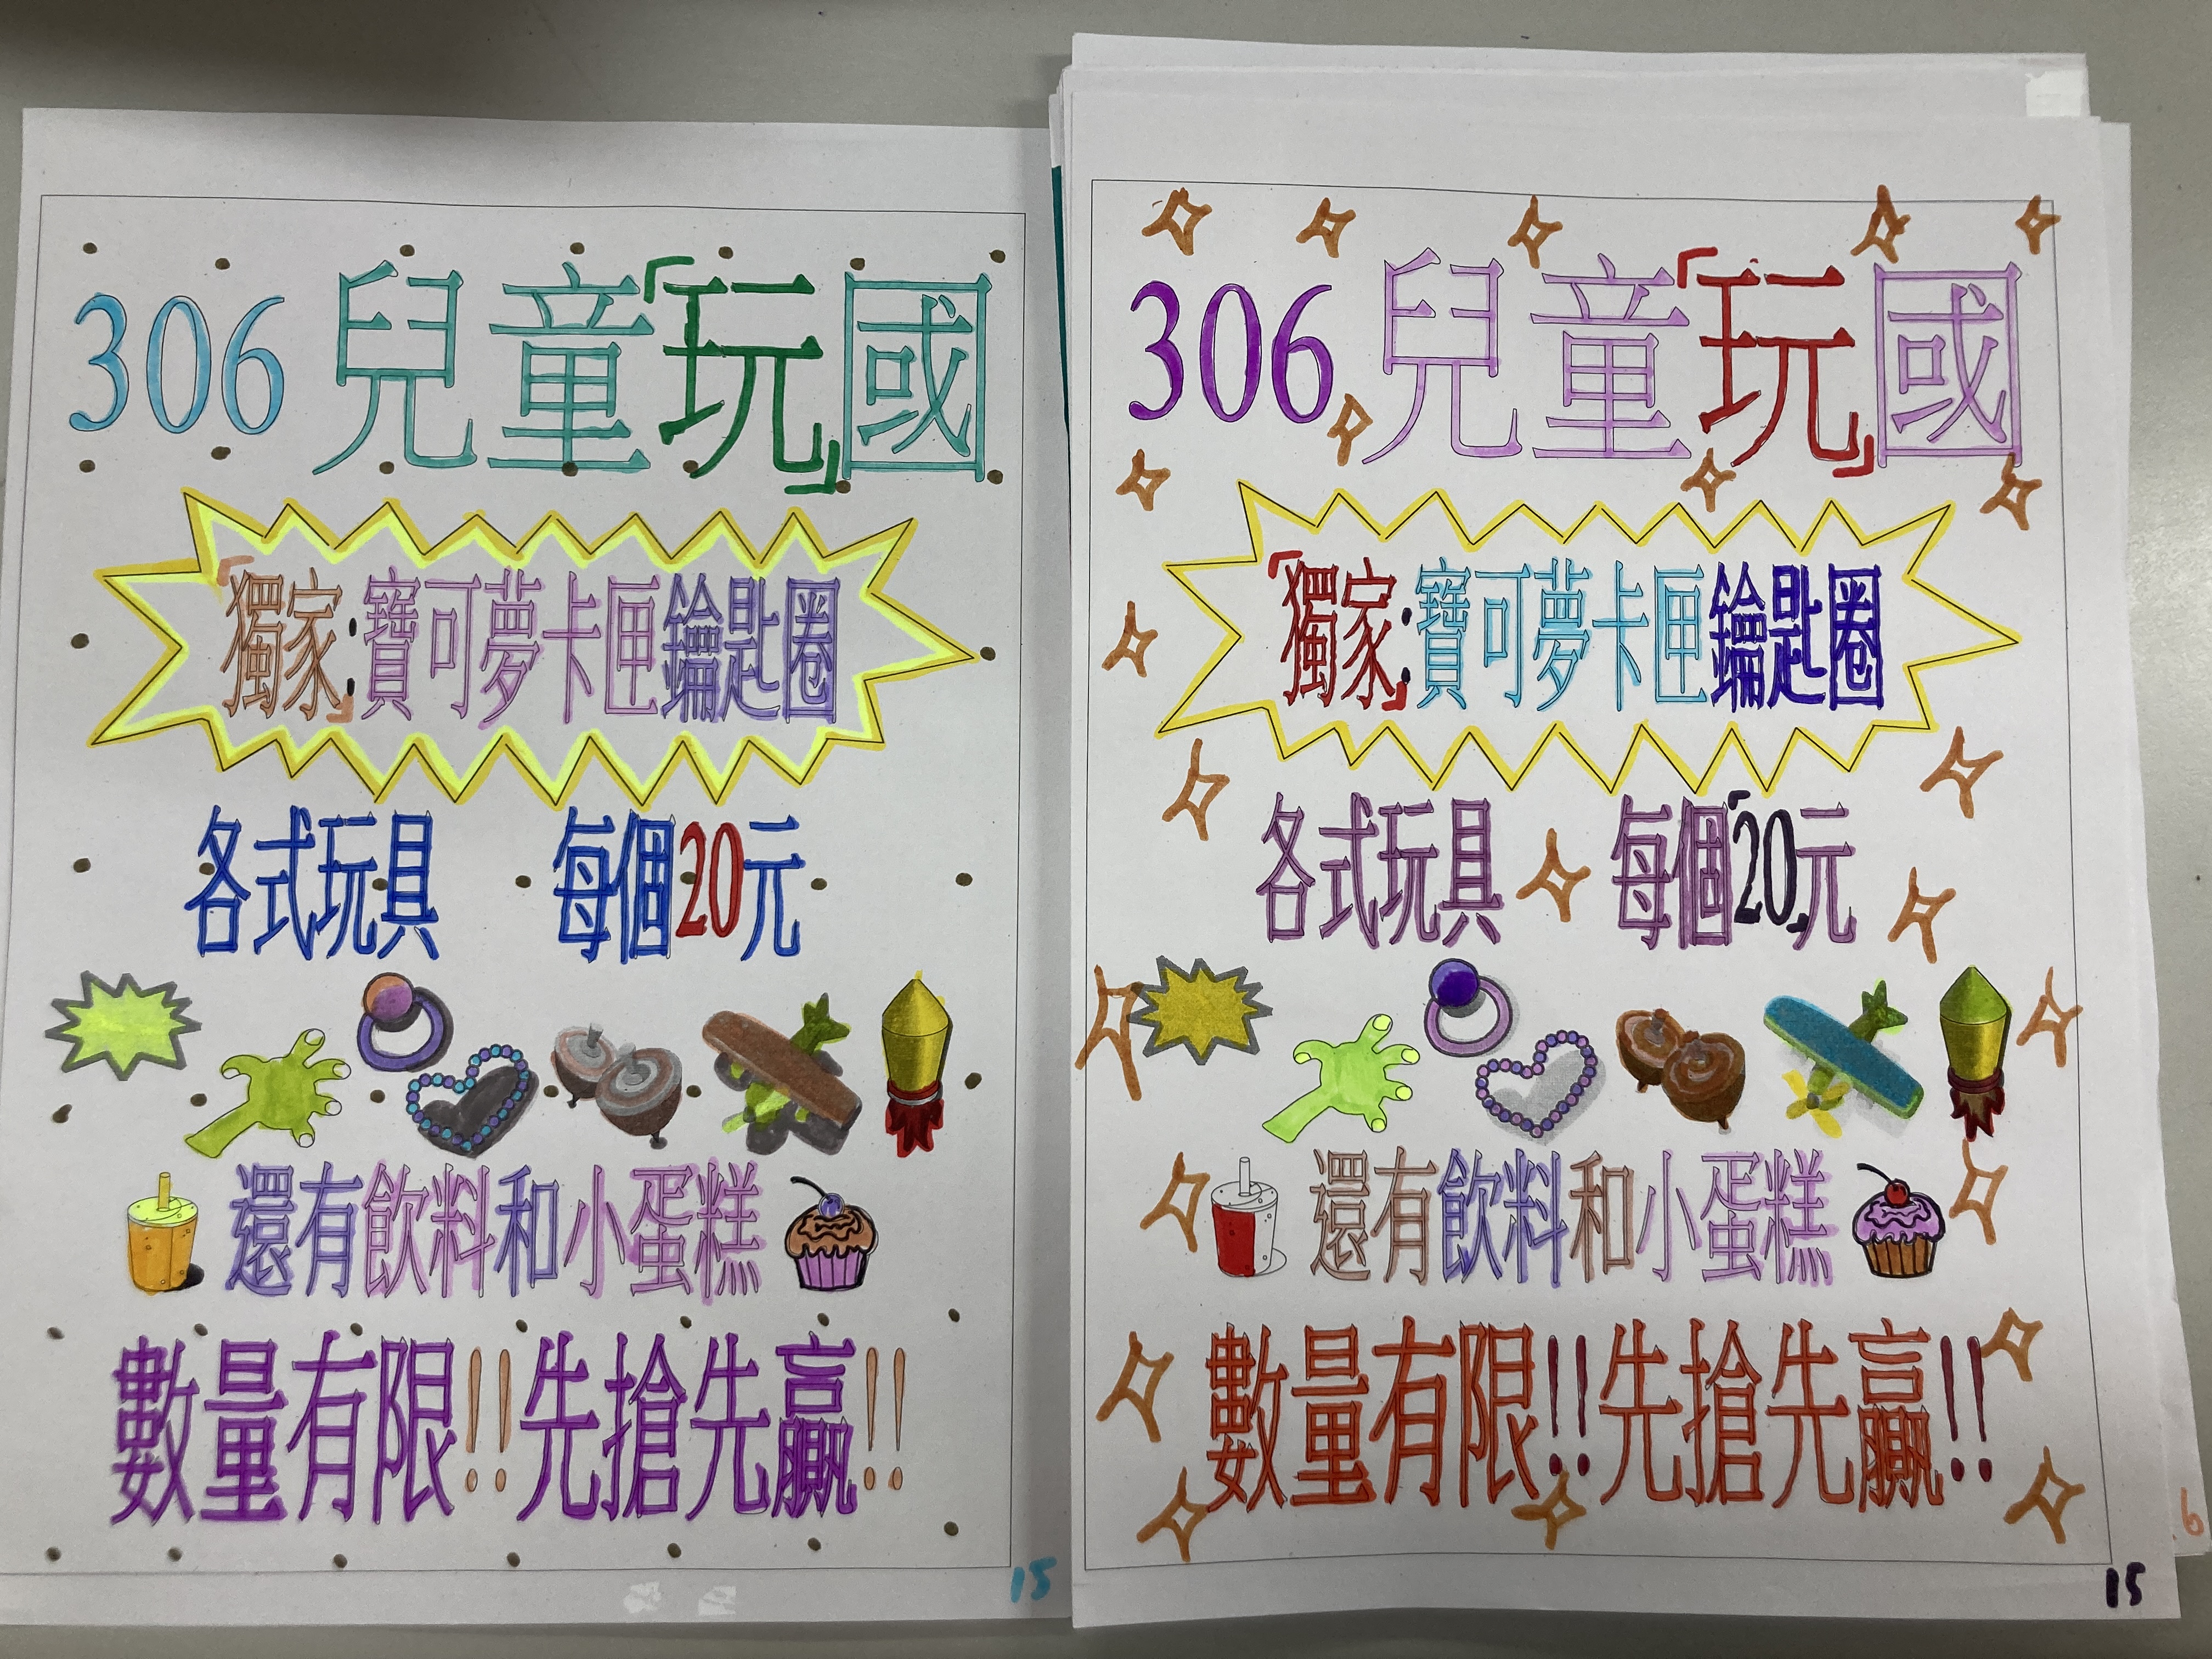 306兒童「玩」國
「獨家」:寶可夢卡匣鑰匙圈
各式玩具 每個20元
還有飲料和小蛋糕
數量有限!!先搶先贏!!
15
306兒童「玩」國
「獨家」:寶可夢卡匣鑰匙圈
各式玩具 每個「20」元
還有飲料和小蛋糕
數量有限!!先搶先贏!!
15
6